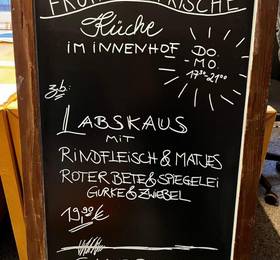 Küche
IM INNENHOF
DO.
-
MO.
17³⁰-21⁰⁰
z.b:
LABSKAUS
MIT
RINDFLEISCH & MATJES
ROTER BETE & SPIEGELEI
GURKE & ZWIEBEL
19,90 €